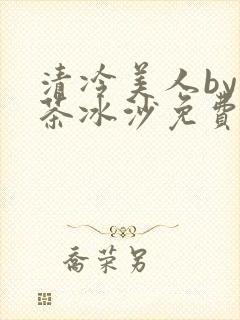 清冷美人by
茶冰沙免费
乔荣另